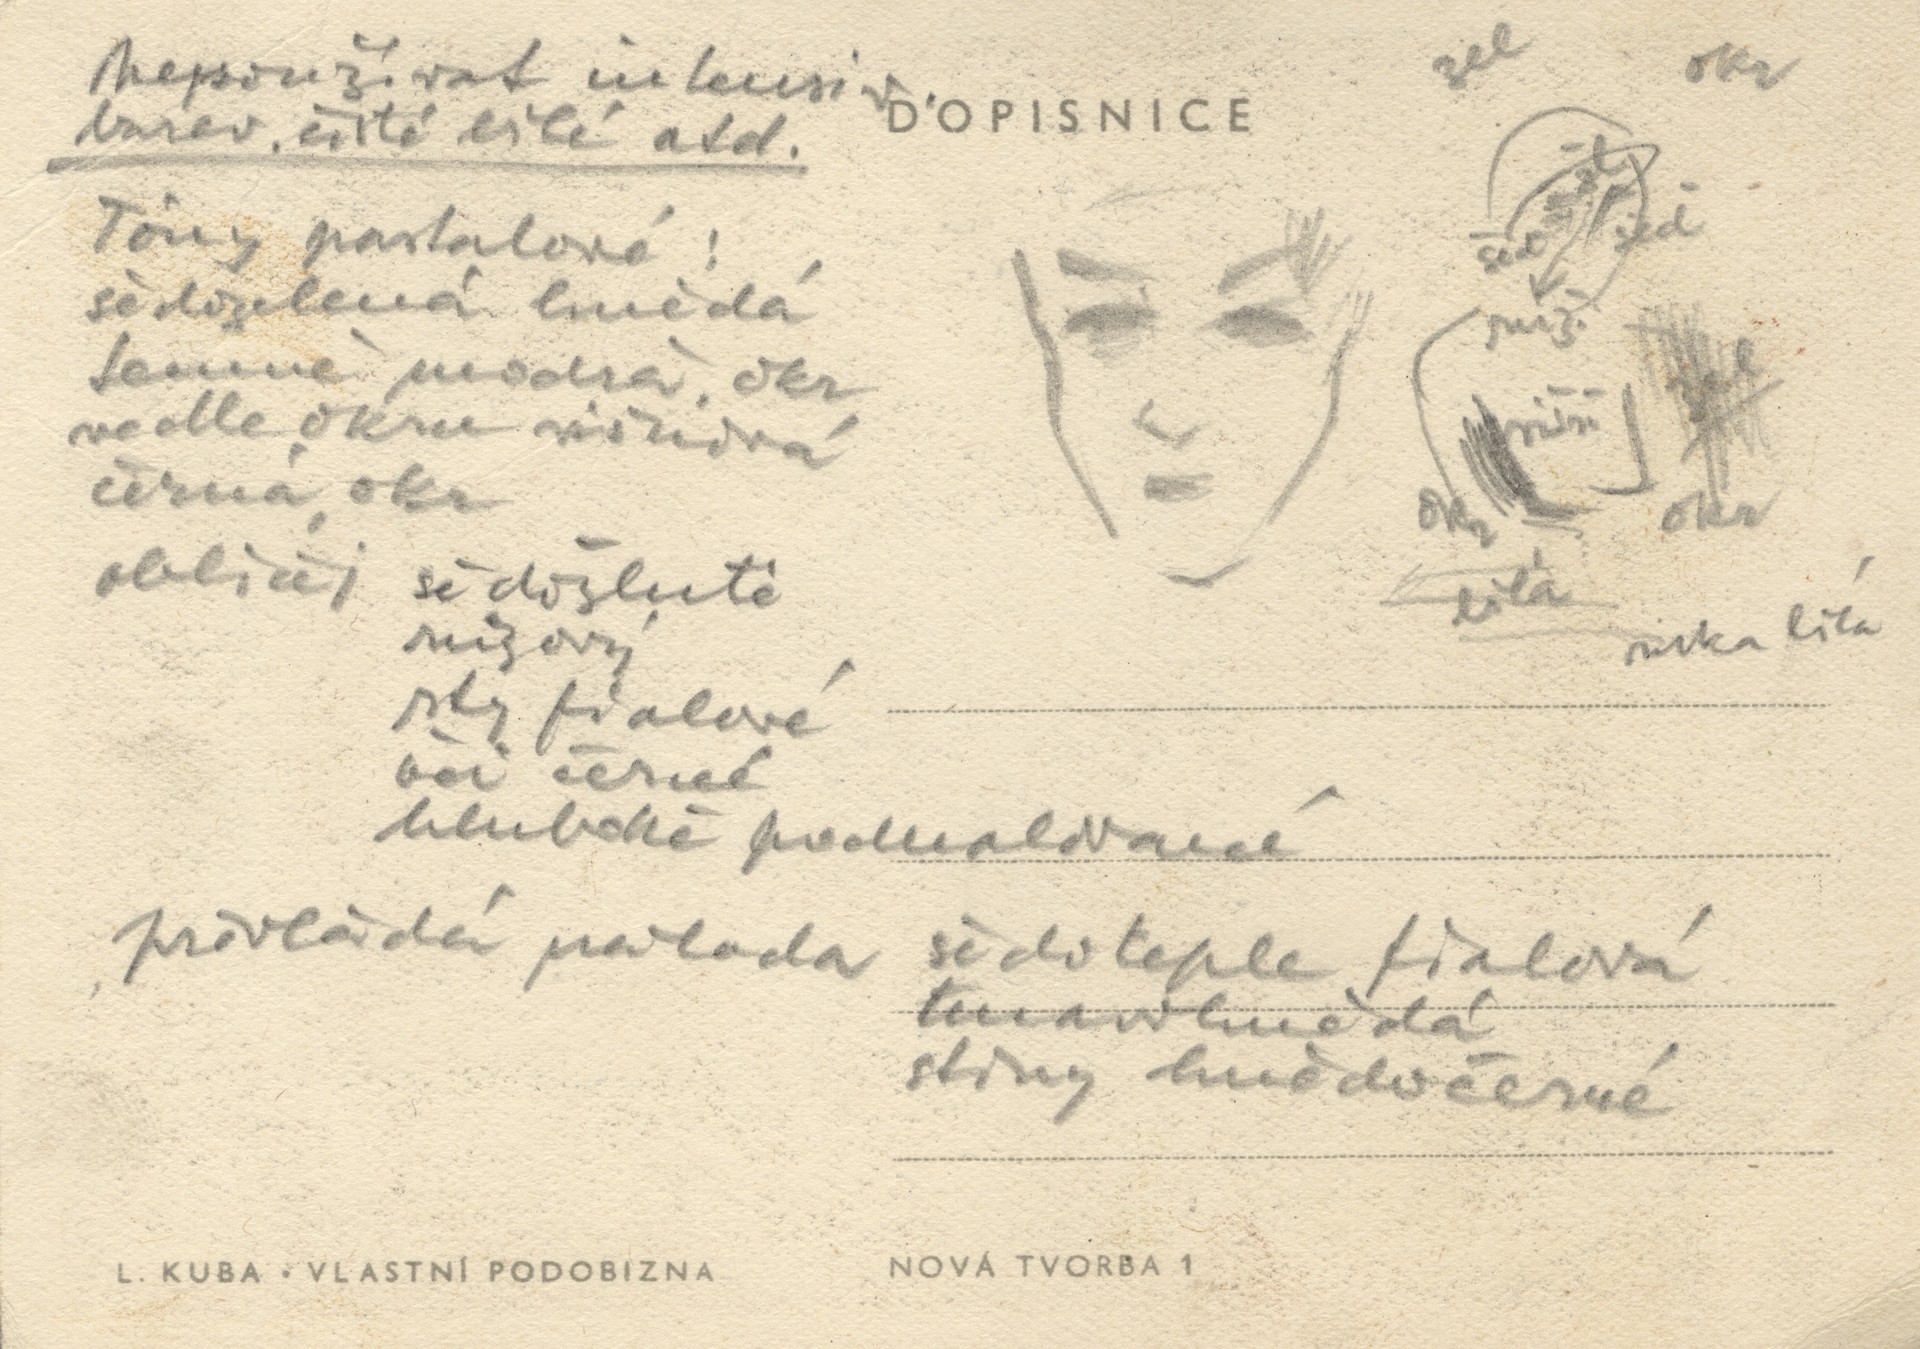 Nepoužívat intensiv.
barev. čisté bílé atd.
DOPISNICE
Tóny pastelové!
šedozelená hnědá
temně modrá, okr
vedle okru višňová
černá, okr
obličej šedožlutě
růžový
rty fialové
oči černé
hluboké podmalované
převládá nálada šedoteple fialová
tmavohnědá
stíny hnědočerné
zel
okr
šed
šed
růž
zel
višň
okr
okr
bílá
ruka bílá
L. KUBA • VLASTNÍ PODOBIZNA
NOVÁ TVORBA 1